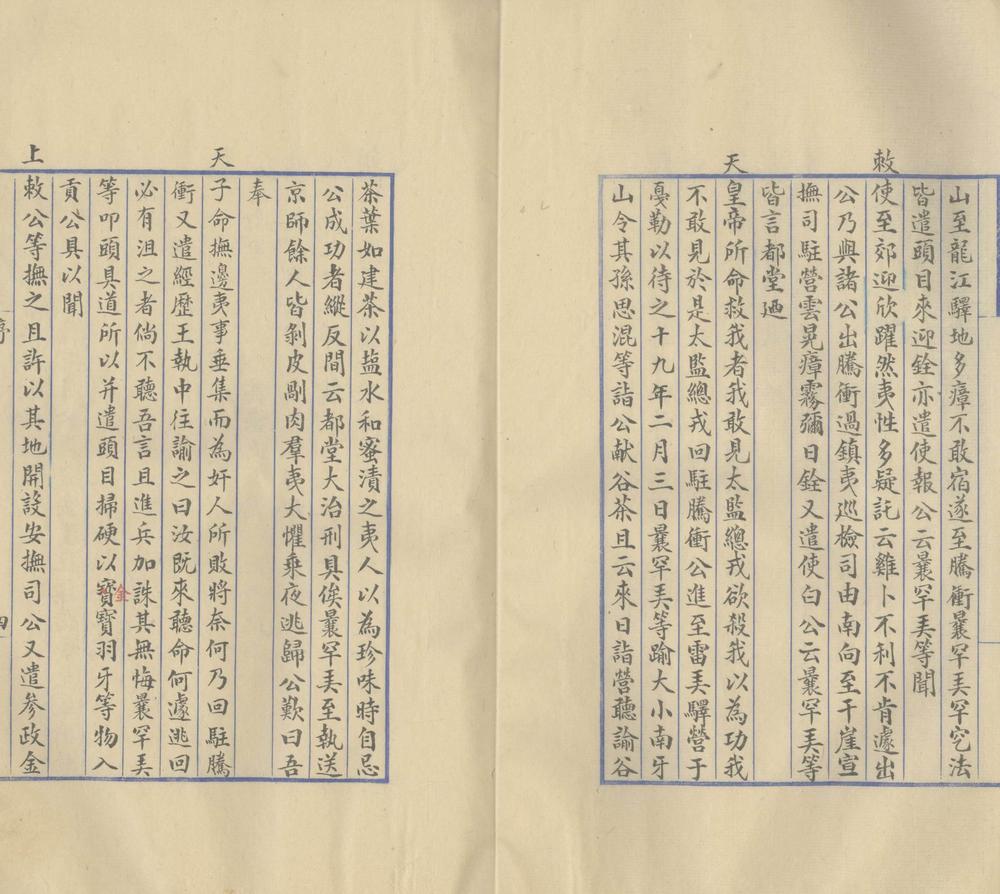 山至龍江驛地多瘴不敢宿遂至騰衝曩罕弄罕空法
皆遣頭目來迎銓亦遣使報公云曩罕弄等聞
敕
使至郊迎欣躍然夷性多疑託云雞卜不利不肯遽出
公乃與諸公出騰衝過鎮夷巡檢司由南向至干崖宣
撫司駐營雲晃瘴霧彌日銓又遣使白公云曩罕弄等
皆言都堂廼
天
皇帝所命救我者我敢見太監總戎欲殺我以為功我
不敢見於是太監總戎回駐騰衝公進至雷弄驛營于
戞勒以待之十九年二月三日曩罕弄等踰大小南牙
山令其孫思混等詣公献谷茶且云來日詣營聽諭谷
茶葉如建茶以盐水和蜜漬之夷人以為珍味時自忌
公成功者縱反間云都堂大治刑具俟曩罕弄至執送
京師餘人皆剝皮剮肉羣夷大懼乘夜逃歸公歎曰吾
奉
天
子命撫邊夷事垂集而為奸人所敗將奈何乃回駐騰
衝又遣經歷王執中往諭之曰汝既來聽命何遽逃回
必有沮之者倘不聽吾言且進兵加誅其無悔曩罕弄
等叩頭具道所以并遣頭目掃硬以寶寶羽牙等物入
金
貢公具以聞
上
敕公等撫之且許以其地開設安撫司公又遣參政金